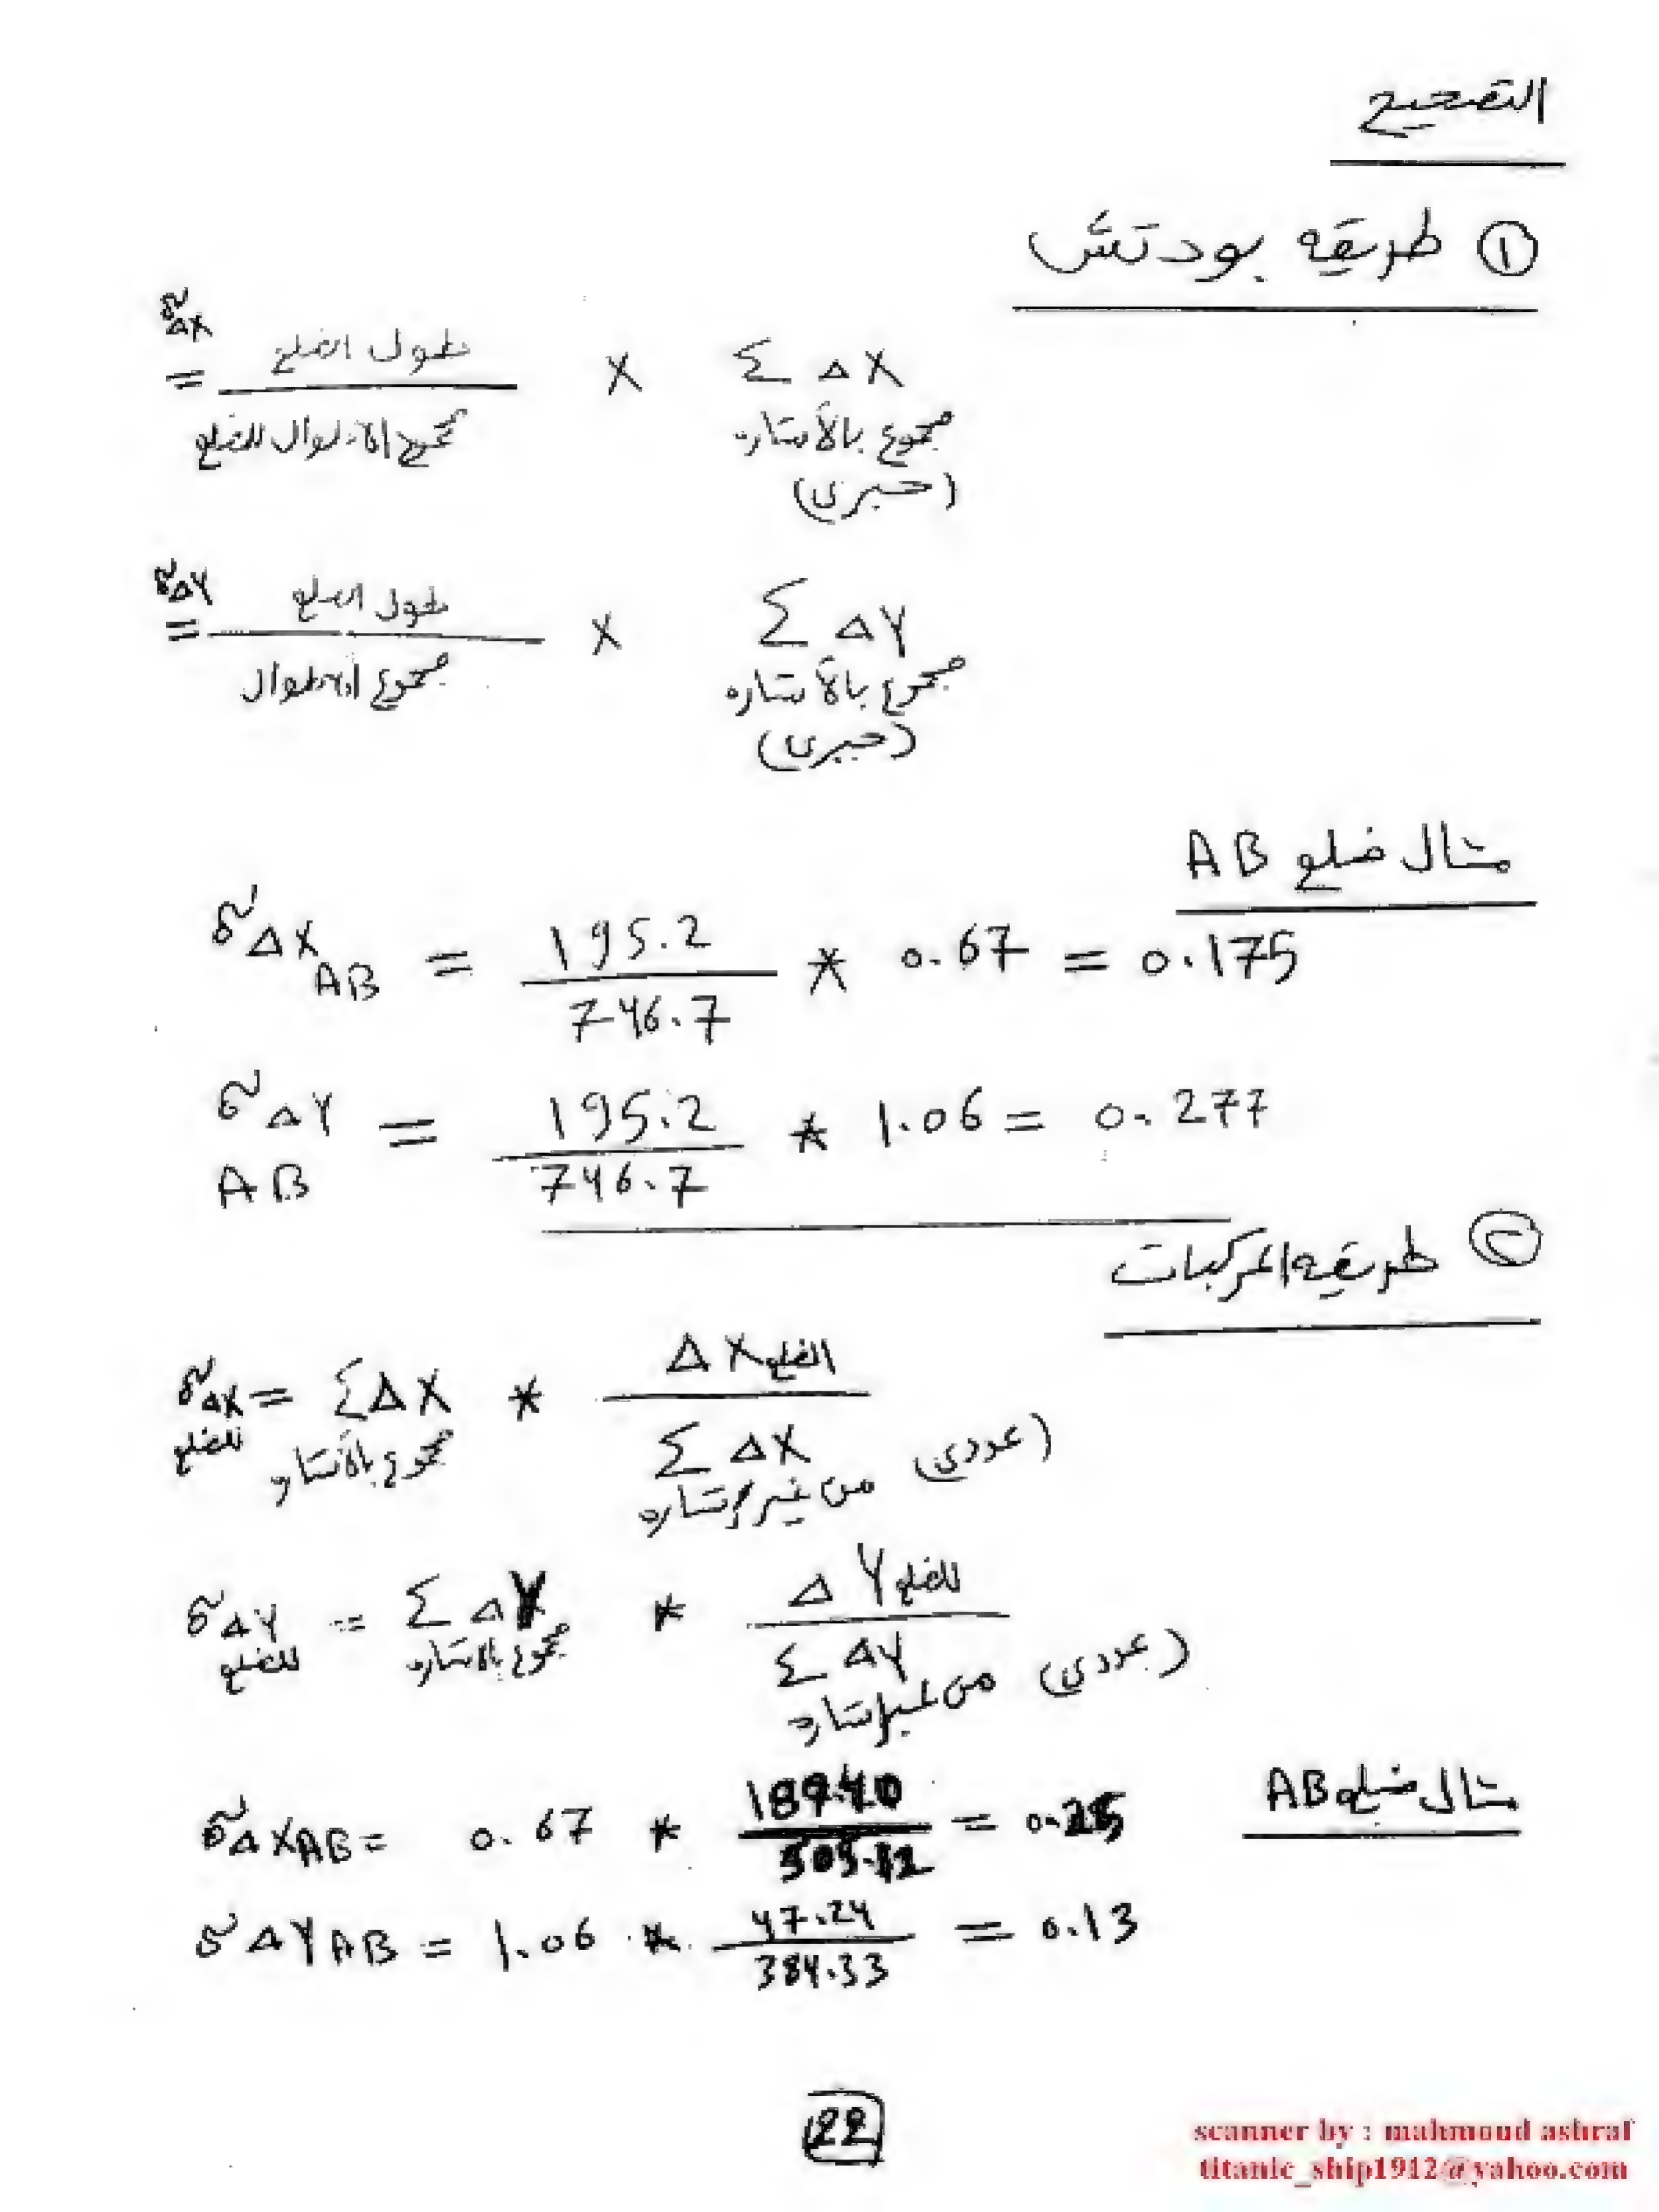 التصحيح
① طريقه بودتش
δΔX = طول الضلع / مجموع الاطوال للضلع × Σ ΔX
مجموع بالأشاره
(جبرى)
δΔY = طول الضلع / مجموع الاطوال × Σ ΔY
مجموع بالأشاره
(جبرى)
مثال ضلع AB
δΔX AB = 195.2 / 746.7 * 0.67 = 0.175
δΔY AB = 195.2 / 746.7 * 1.06 = 0.277
② طريقه المركبات
δΔX للضلع = ΣΔX مجموع بالأشاره * ΔX الضلع / Σ ΔX من غير إشاره (عددى)
δΔY للضلع = Σ ΔY مجموع بالاشاره * ΔY للضلع / Σ ΔY من غير إشاره (عددى)
مثال ضلع AB
δΔXAB = 0.67 * 189.40 / 505.12 = 0.25
δΔYAB = 1.06 * 47.24 / 384.33 = 0.13
22
scanner by : mahmoud ashraf
titanic_ship1912@yahoo.com